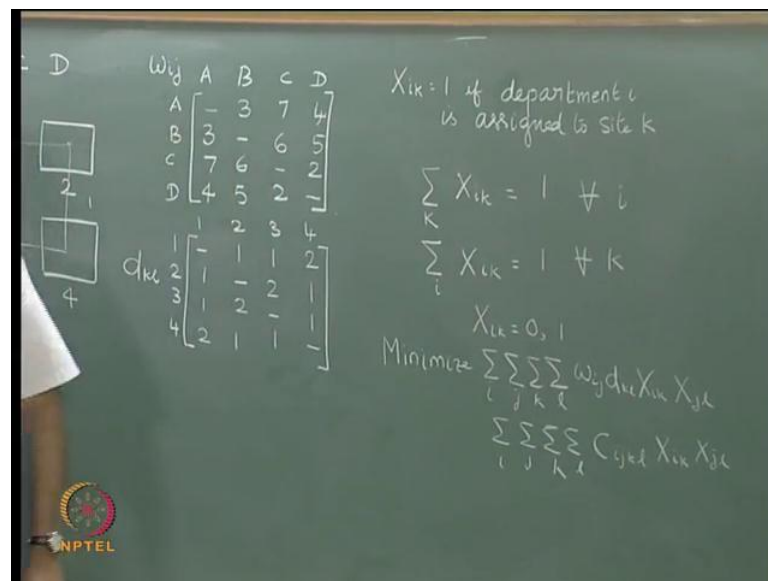 D
2
1
4
Wij A B C D
A [ - 3 7 4 ]
B [ 3 - 6 5 ]
C [ 7 6 - 2 ]
D [ 4 5 2 - ]
1 2 3 4
1 [ - 1 1 2 ]
dkl 2 [ 1 - 2 1 ]
3 [ 1 2 - 1 ]
4 [ 2 1 1 - ]
Xik = 1 if department i
is assigned to site k
∑K Xik = 1 ∀ i
∑i Xik = 1 ∀ k
Xik = 0, 1
Minimize ∑i ∑j ∑k ∑l wij dkl Xik Xjl
∑i ∑j ∑k ∑l Cijkl Xik Xjl
NPTEL